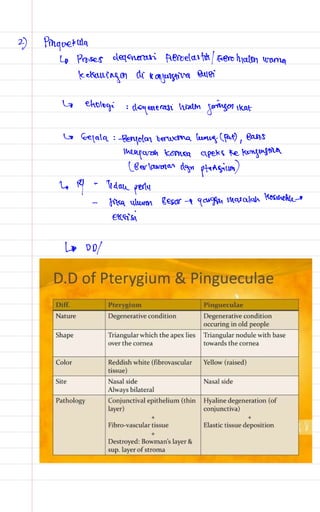 2) Pinguecula
↳ Proses degenerasi fibroelastik/ fibrohialin warna
kekuningan di konjungtiva bulbi
↳ etiologi : degenerasi hialin jaringan ikat
↳ Gejala : - Benjolan berwarna kuning (fat), Basis
mengarah kornea apeks ke konjungtiva
(Berlawanan dgn pterigium)
- Tidak perlu
- jika ukuran Besar → gangguan masalah kosmetik →
eksisi
↳ DD/
D.D of Pterygium & Pingueculae
Diff. Pterygium Pingueculae
Nature Degenerative condition Degenerative condition
occuring in old people
Shape Triangular which the apex lies Triangular nodule with base
over the cornea towards the cornea
Color Reddish white (fibrovascular Yellow (raised)
tissue)
Site Nasal side Nasal side
Always bilateral
Pathology Conjunctival epithelium (thin Hyaline degeneration (of
layer) conjunctiva)
+ +
Fibro-vascular tissue Elastic tissue deposition
+
Destroyed: Bowman's layer &
sup. layer of stroma